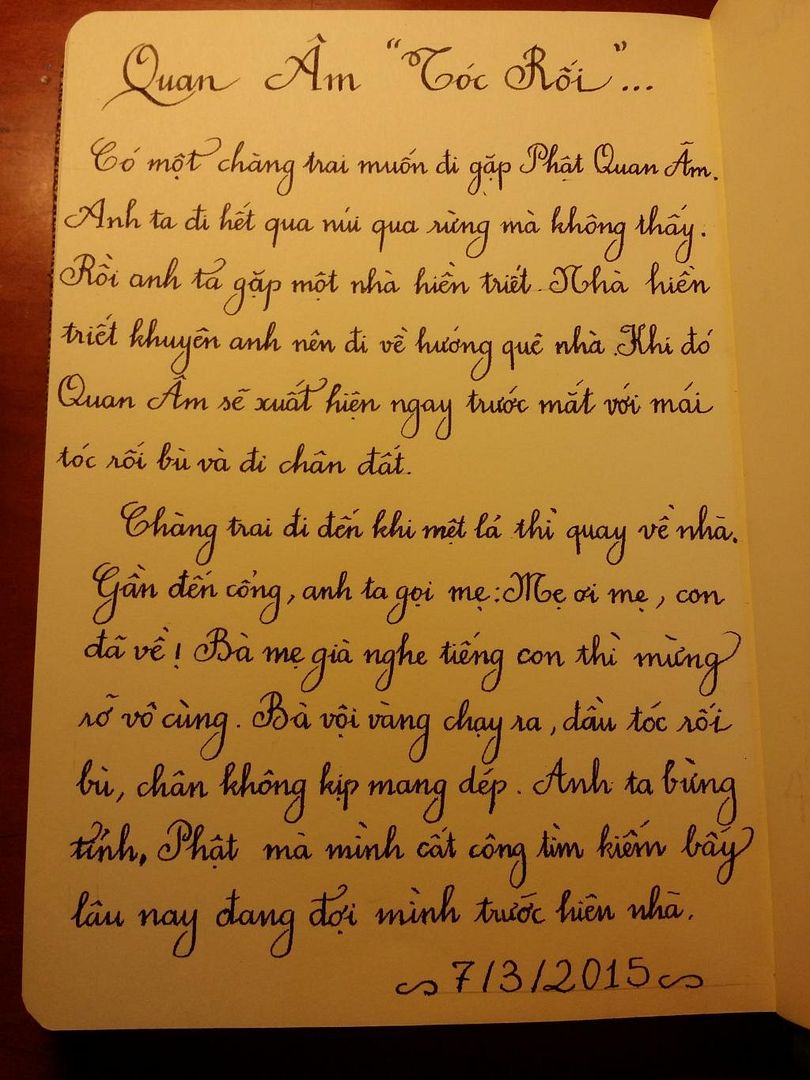 Quan Âm "Tóc Rối"...
Có một chàng trai muốn đi gặp Phật Quan Âm.
Anh ta đi hết qua núi qua rừng mà không thấy.
Rồi anh ta gặp một nhà hiền triết. Nhà hiền
triết khuyên anh nên đi về hướng quê nhà. Khi đó
Quan Âm sẽ xuất hiện ngay trước mắt với mái
tóc rối bù và đi chân đất.
Chàng trai đi đến khi mệt lả thì quay về nhà.
Gần đến cổng, anh ta gọi mẹ: Mẹ ơi mẹ, con
đã về! Bà mẹ già nghe tiếng con thì mừng
rỡ vô cùng. Bà vội vàng chạy ra, đầu tóc rối
bù, chân không kịp mang dép. Anh ta bừng
tỉnh, Phật mà mình cất công tìm kiếm bấy
lâu nay đang đợi mình trước hiên nhà.
7/3/2015